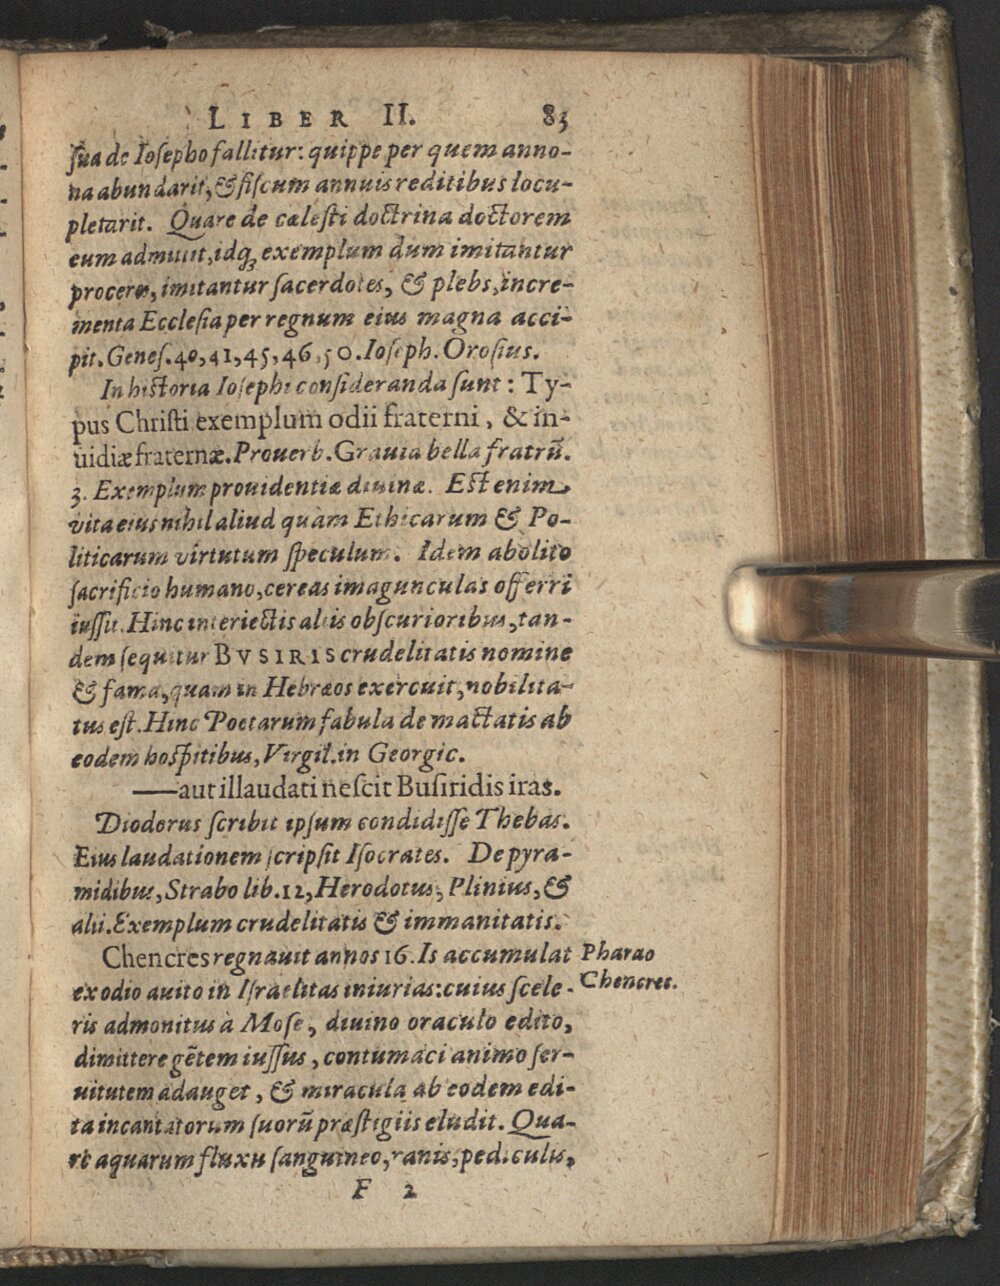 LIBER II. 83
sua de Iosepho fallitur: quippe per quem anno-
na abundarit, & fiscum annuis reditibus locu-
pletarit. Quare de cælesti doctrina doctorem
eum admittit, idq; exemplum dum imitantur
proceres, imitantur sacerdotes, & plebs, incre-
menta Ecclesia per regnum eius magna acci-
pit. Genes. 40, 41, 45, 46, 50. Ioseph. Orosius.
In historia Iosephi consideranda sunt: Ty-
pus Christi exemplum odii fraterni, & in-
uidiæ fraternæ. Prouerb. Grauia bella fratrū.
3. Exemplum prouidentiæ diuinæ. Est enim
vita eius nihil aliud quàm Ethicarum & Po-
liticarum virtutum speculum. Idem abolito
sacrificio humano, cereas imagunculas offerri
iussit. Hinc interiectis aliis obscurioribus, tan-
dem sequitur BVSIRIS crudelitatis nomine
& fama, quam in Hebræos exercuit, nobilita-
tus est. Hinc Poetarum fabula de mactatis ab
eodem hospitibus, Virgil. in Georgic.
—aut illaudati nescit Busiridis iras.
Diodorus scribit ipsum condidisse Thebas.
Eius laudationem scripsit Isocrates. De pyra-
midibus, Strabo lib. 12, Herodotus, Plinius, &
alii. Exemplum crudelitatis & immanitatis.
Chencres regnauit annos 16. Is accumulat
Pharao
Chencres.
ex odio auito in Israelitas iniurias: cuius scele-
ris admonitus à Mose, diuino oraculo edito,
dimittere gētem iussus, contumaci animo ser-
uitutem adauget, & miracula ab eodem edi-
ta incantatorum suorū præstigiis eludit. Qua-
re aquarum fluxu sanguineo, ranis, pediculis,
F 2